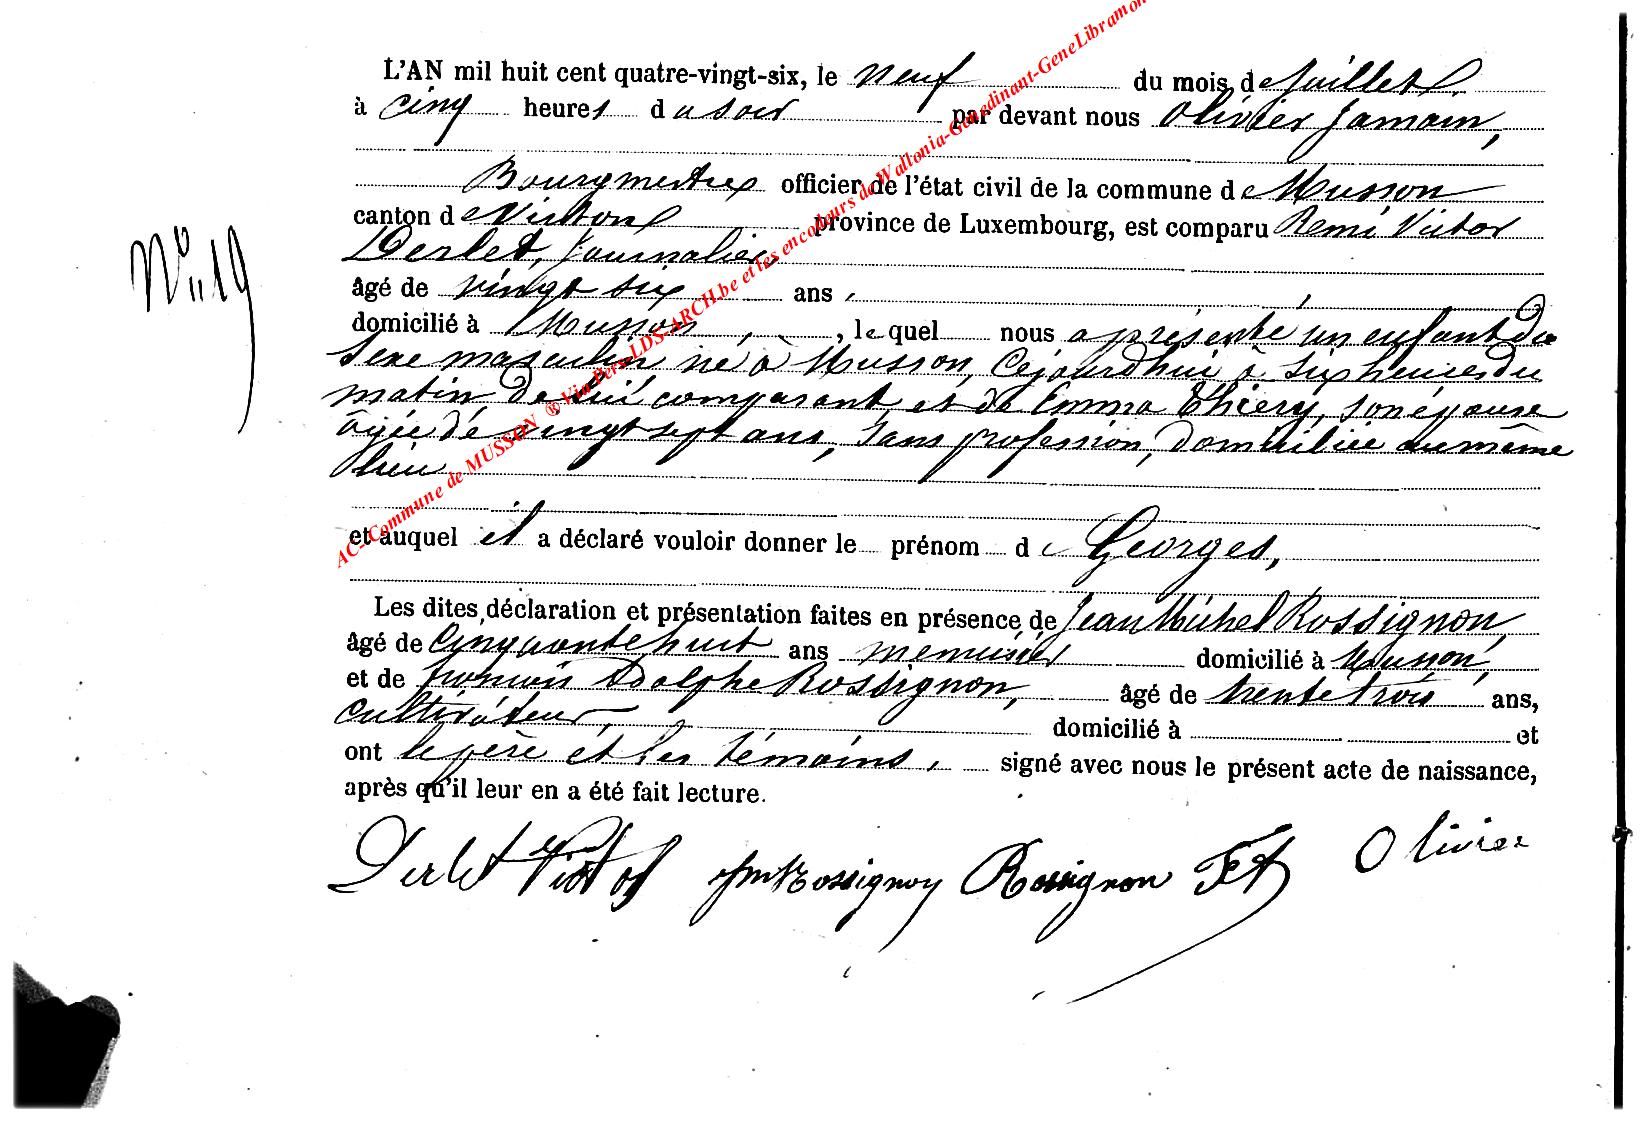 L'AN mil huit cent quatre-vingt-six, le neuf du mois de Juillet
à cinq heures du soir par devant nous Olivier Jamain,
Bourgmestre officier de l'état civil de la commune de Musson
canton de Virton province de Luxembourg, est comparu Remi Victor
Derlet, Journalier,
N° 19
âgé de vingt six ans,
domicilié à Musson, , lequel nous a présenté un enfant du
Sexe masculin né à Musson, Cejourdhui à six heures du
matin de lui comparant et de Emma Thiery, son épouse
âgée de vingt sept ans, Sans profession, domiciliée au même
lieu
et auquel il a déclaré vouloir donner le prénom de Georges,
Les dites déclaration et présentation faites en présence de Jean Michel Rossignon,
âgé de Cinquante huit ans menuisier domicilié à Musson,
et de Adolphe Rossignon, âgé de trente trois ans,
Cultivateur, domicilié à et
ont le père et les témoins, signé avec nous le présent acte de naissance,
après qu'il leur en a été fait lecture.
Derlet Victor Rossignon Rossignon Olivier
AC-Commune de MUSSON ® Via Pers-LDS-ARCH.be et les encodeurs de Wallonia-Genedinant-GeneLibramon